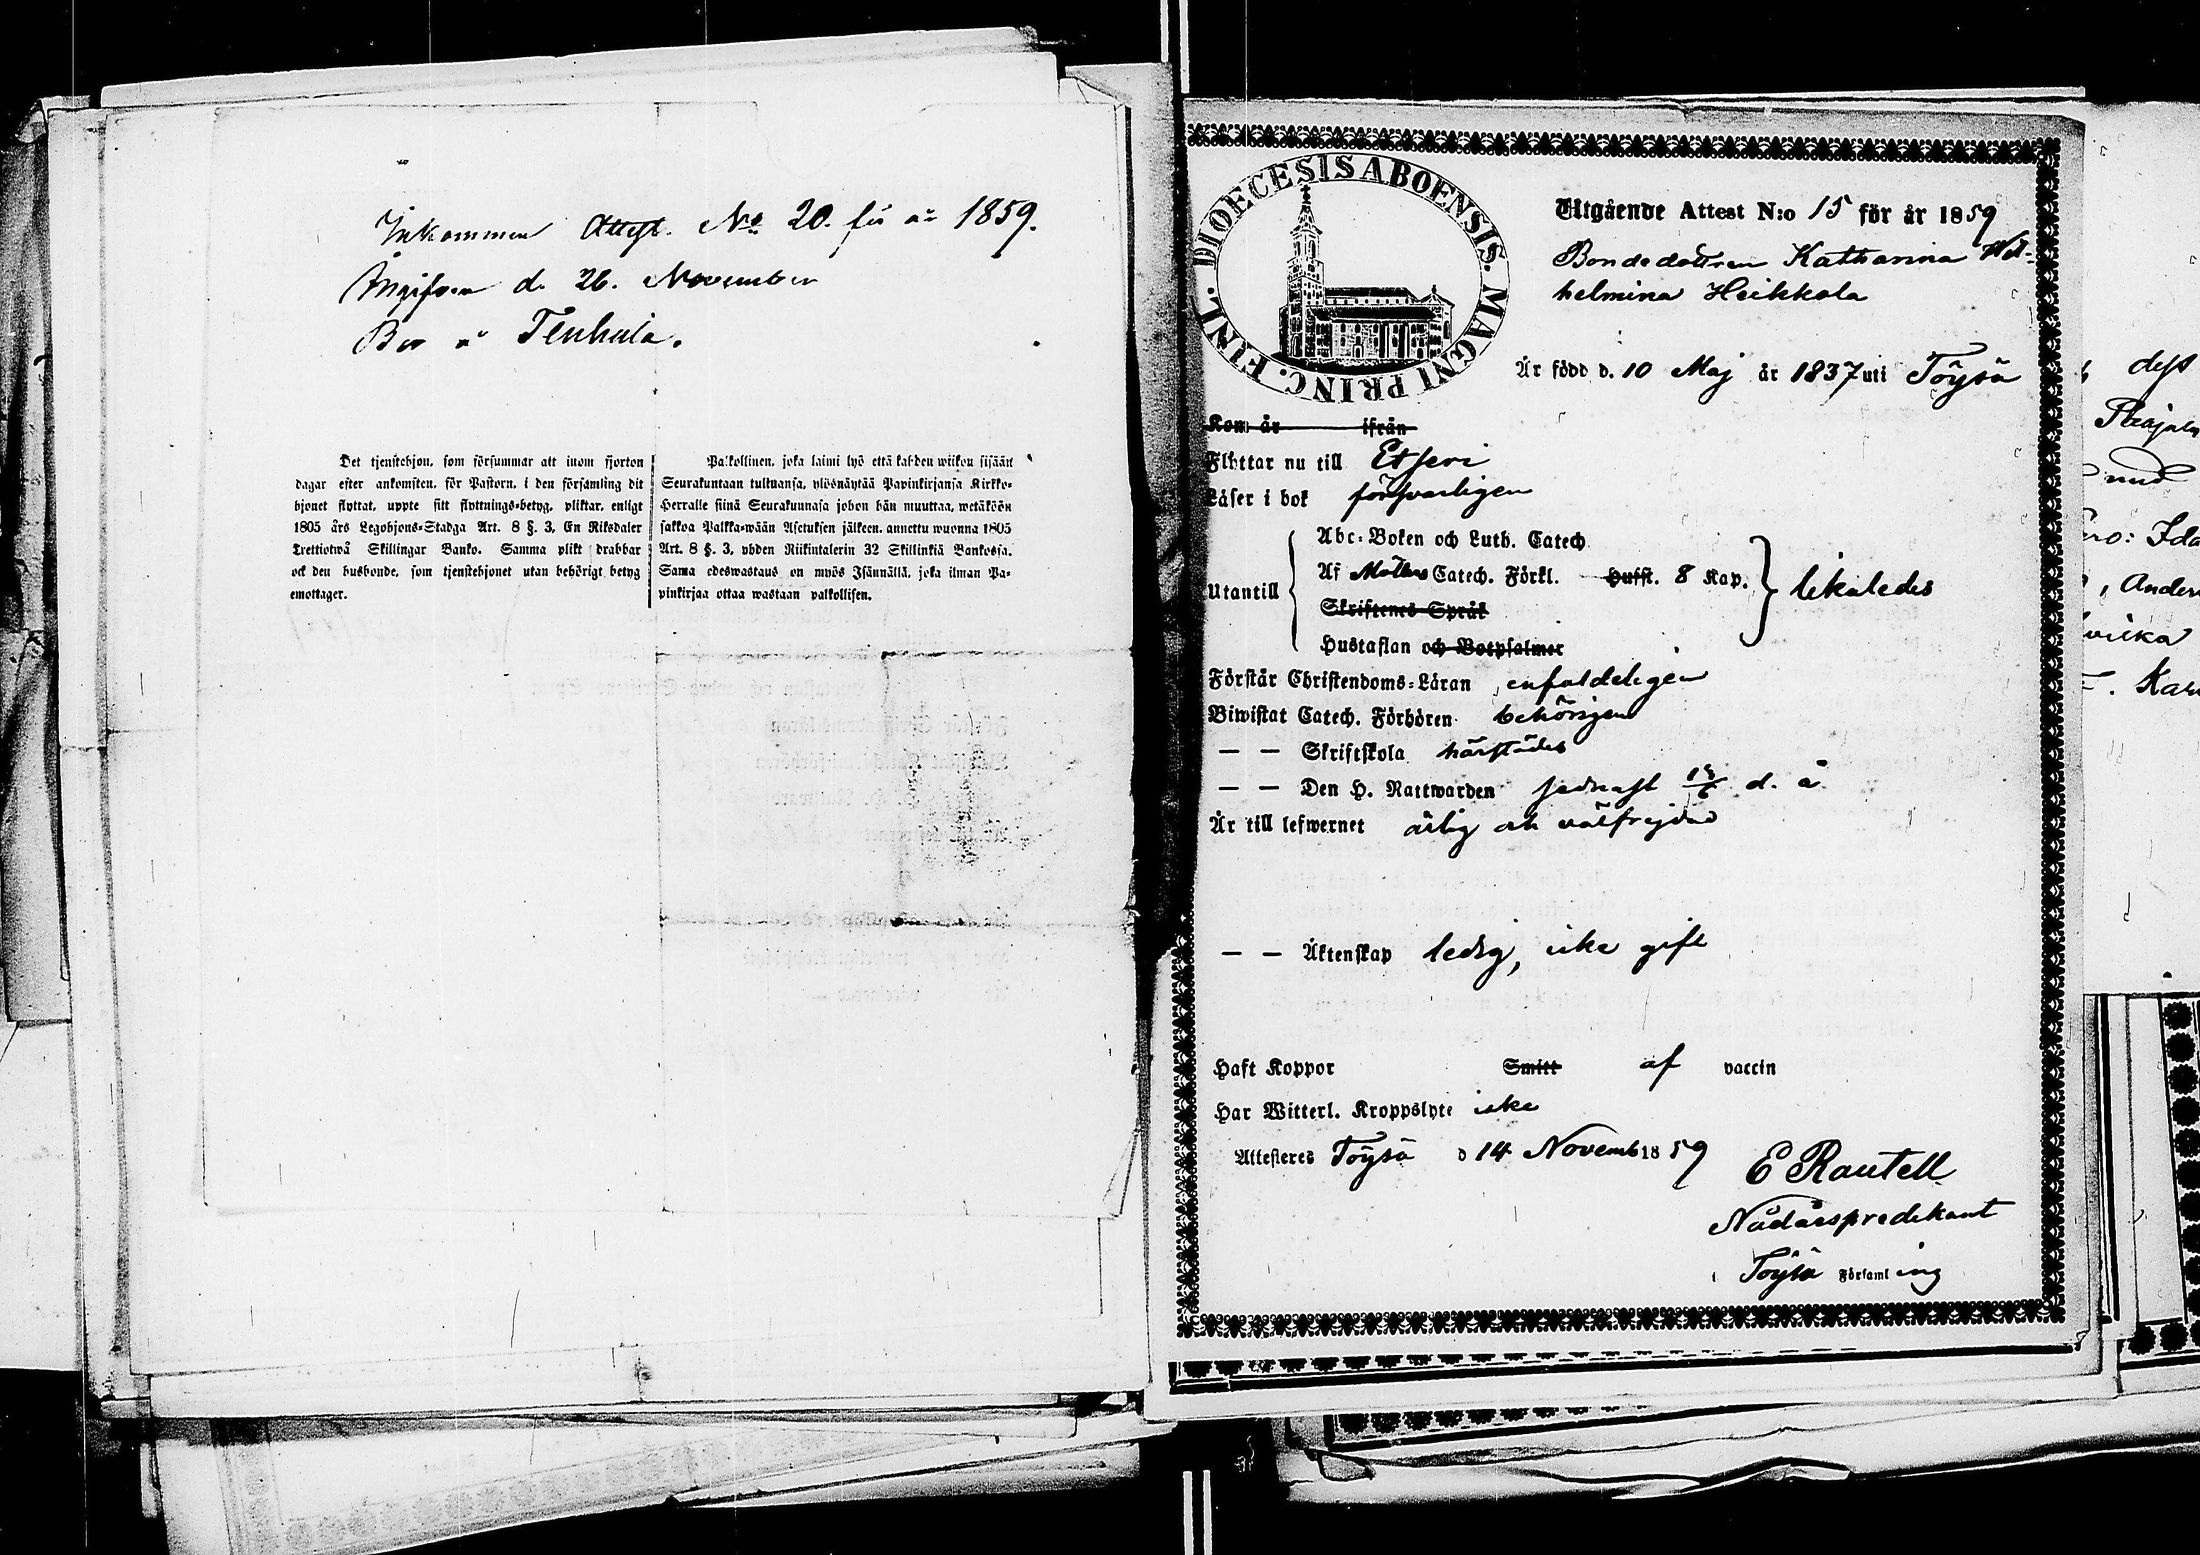 Inkommen Attest. No 20. för år 1859.
Angifven d. 26. November
Bor i Tenhula.
Det tjenstehjon, som försummar att inom fjorton
dagar efter ankomsten, för Pastorn, i den församling dit
hjonet flyttat, uppte sitt flyttnings-betyg, pliktar, enligt
1805 års Legohjons-Stadga Art. 8 §. 3, En Riksdaler
Trettiotwå Skillingar Banko. Samma plikt drabbar
ock den husbonde, som tjenstehjonet utan behörigt betyg
emottager.
Palkollinen, joka laimi lyö että kahden wiikon sisään
Seurakuntaan tultuansa, ylösnäytää Papinkirjansa Kirkko-
Herralle siinä Seurakunnasa johon hän muuttaa, wetäköön
sakkoa Palkka-wään Asetuksen jälkeen, annettu wuonna 1805
Art. 8 §. 3, yhden Riikintalerin 32 Skillinkiä Bankosia.
Sama edeswastaus on myös Isännällä, joka ilman Pa-
pinkirjaa ottaa wastaan palkollisen.
DIOECESIS ABOENSIS. MAGNI PRINC. FINL.
Utgående Attest N:o 15 för år 1859
Bondedottren Katharina Wil-
helmina Heikkola
Är född d. 10 Maj år 1837 uti Töysä
Kom år ifrån
Flyttar nu till Etseri
Läser i bok försvarligen
Abc-Boken och Luth. Catech
Utantill Af Möllers Catech. Förkl. Hufst. 8 Kap. likaledes
Skriftenes Språk
Hustaflan och Botpsalmer
Förstår Christendoms-Läran enfaldeligen
Biwistat Catech. Förhören behörigen
— — Skriftskola härstädes
— — Den H. Nattwarden sednast d. å
Är till lefwernet ärlig och välfrejdad
— — Äktenskap ledig, icke gift
Haft Koppor Smitt af vaccin
Har Witterl. Kroppslyte icke
Attesteras Töysä d 14 Novemb 1859
E Rautell
Nådårspredikant
i Töysä Församling
dess
Anders